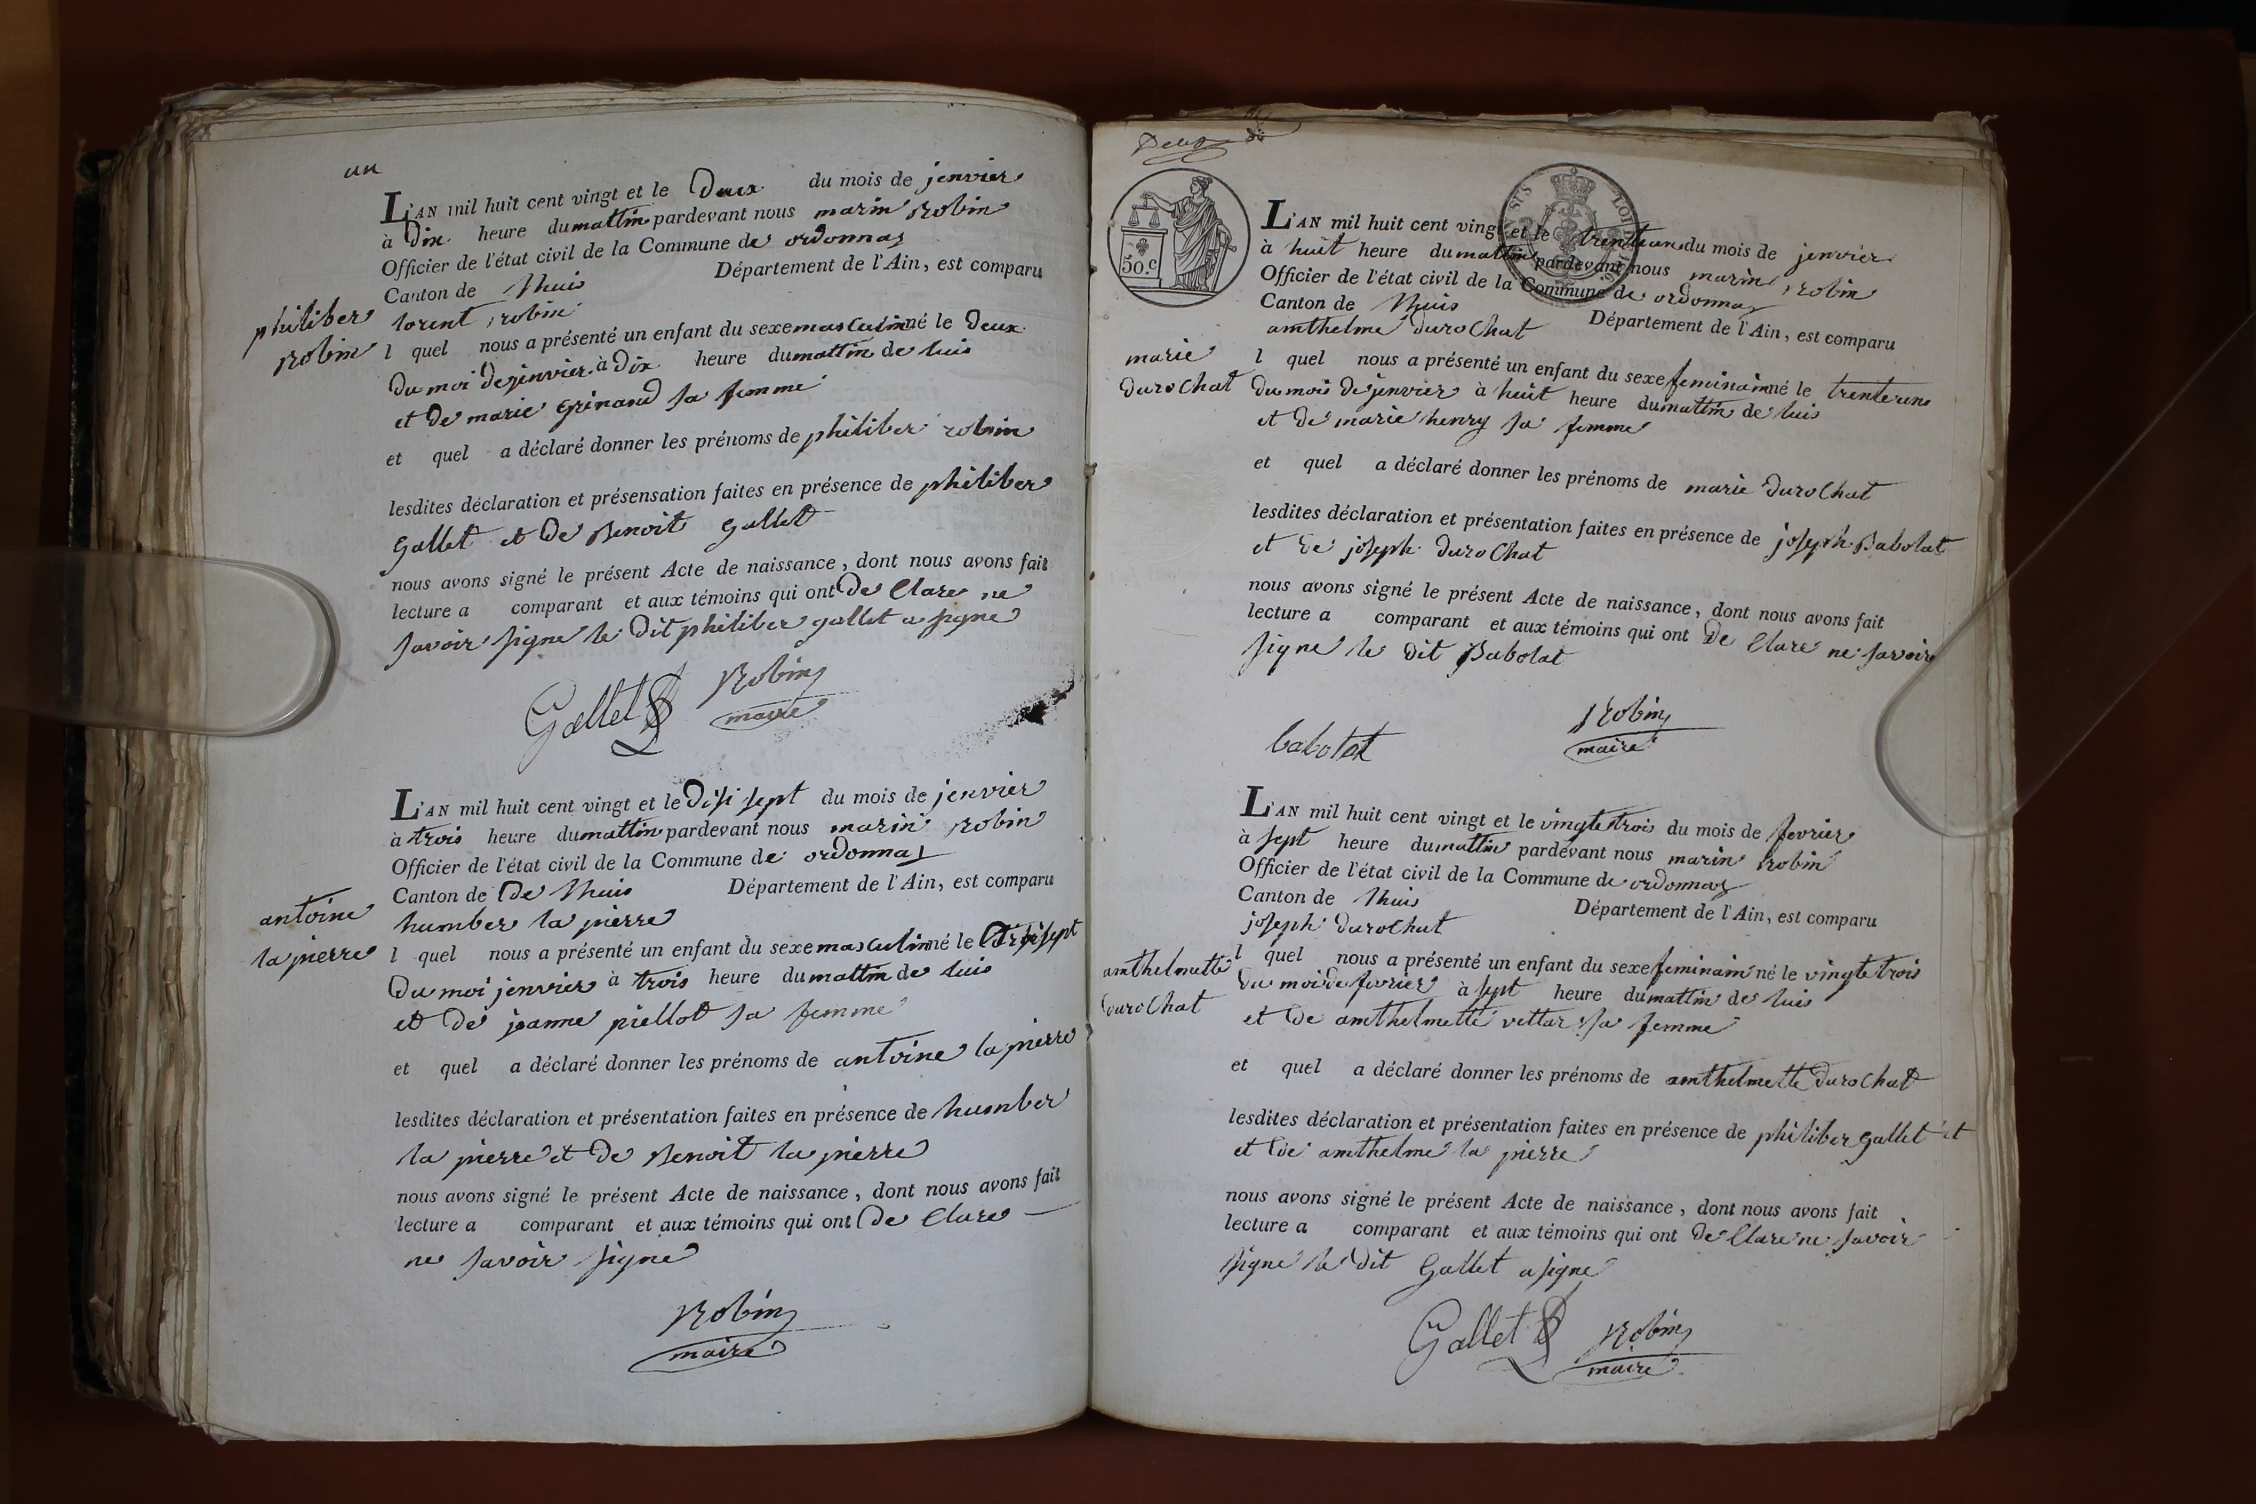 un
L'AN mil huit cent vingt et le Deux du mois de jenvier
à Dix heure du mattin pardevant nous marin Robin
Officier de l'état civil de la Commune de ordonnaz
Canton de lhuis Département de l'Ain, est comparu
philiber
lorent robin
robin
l quel nous a présenté un enfant du sexe masculin né le Deux
Du moi De jenvier à Dix heure du mattin de luis
et De marie Grinand sa femme
et quel a déclaré donner les prénoms de philiber robin
lesdites déclaration et présensation faites en présence de philiber
Gallet et De Benoit Gallet
nous avons signé le présent Acte de naissance, dont nous avons fait
lecture a comparant et aux témoins qui ont De Clare ne
savoir signe le Dit philiber gallet a signe
Gallet Robin
maire
L'AN mil huit cent vingt et le Disi sept du mois de jenvier
à trois heure du mattin pardevant nous marin Robin
Officier de l'état civil de la Commune de ordonnaz
Canton de De lhuis Département de l'Ain, est comparu
antoine
humber la pierre
la pierre
l quel nous a présenté un enfant du sexe masculin né le sept
Du moi jenvier à trois heure du mattin de luis
et de jeanne piellot sa femme
et quel a déclaré donner les prénoms de antoine la pierre
lesdites déclaration et présentation faites en présence de humber
la pierre et de Benoit la pierre
nous avons signé le présent Acte de naissance, dont nous avons fait
lecture a comparant et aux témoins qui ont De Clare
ne savoir signe
Robin
maire
Deux
50.c
L'AN mil huit cent vingt et le trenteun du mois de jenvier
à huit heure du mattin pardevant nous marin robin
Officier de l'état civil de la Commune de ordonnaz
Canton de lhuis Département de l'Ain, est comparu
amthelme duroChat
marie
duroChat
l quel nous a présenté un enfant du sexe feminain né le trenteun
du mois de jenvier à huit heure du mattin de luis
et de marie henry sa femme
et quel a déclaré donner les prénoms de marie duroChat
lesdites déclaration et présentation faites en présence de joseph Babolat
et de joseph duroChat
nous avons signé le présent Acte de naissance, dont nous avons fait
lecture a comparant et aux témoins qui ont De Clare ne savoir
signe le dit Babolat
babolat Robin
maire
L'AN mil huit cent vingt et le vingtetrois du mois de fevrier
à sept heure du mattin pardevant nous marin robin
Officier de l'état civil de la Commune de ordonnaz
Canton de lhuis Département de l'Ain, est comparu
joseph duroChat
amthelmette
duroChat
l quel nous a présenté un enfant du sexe feminain né le vingtetrois
du moi de fevrier à sept heure du mattin de luis
et De amthelmette vettar sa femme
et quel a déclaré donner les prénoms de amthelmette duroChat
lesdites déclaration et présentation faites en présence de philiber Gallet et
et de amthelme la pierre
nous avons signé le présent Acte de naissance, dont nous avons fait
lecture a comparant et aux témoins qui ont De Clare ne savoir
signe le dit Gallet a signe
Gallet Robin
maire